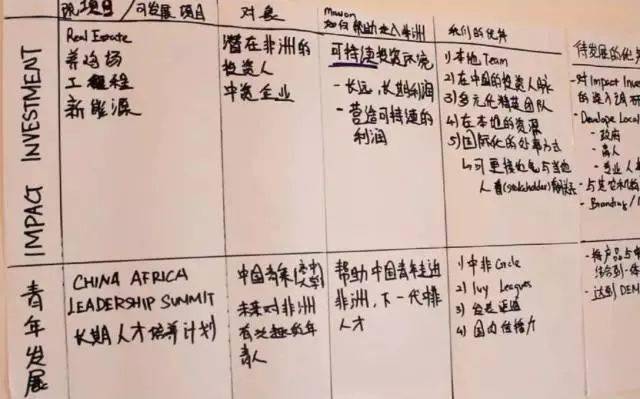 现项目/可发展项目
对象
Muwon
如何帮助进入非洲
我们的优势
待发展的优
IMPACT INVESTMENT
Real Estate
养鸡场
工程
新能源
潜在非洲的
投资人
中资企业
可持续投资环境
- 长远,长期利润
- 营造可持续的
利润
1) 本地 Team
2) 在中国的投资人脉
3) 多元化精英团队
4) 在本地的资源
5) 国际化的处事方式
↳可更接地气与当地
人看(stakeholder)
- 对 Impact Inves
- Develope Local
- 政府
- 商人
- 专业人
- Branding /
青年发展
CHINA AFRICA
LEADERSHIP SUMMIT
长期人才培养计划
中国青年(大中学)
未来对非洲
有兴趣的年
青人
帮助中国青年走进
非洲,下一代
人才
1) 中非 Circle
2) Ivy Leagues
3)
4) 国内
- 将产品与
结合到一体
- 达到 DEM